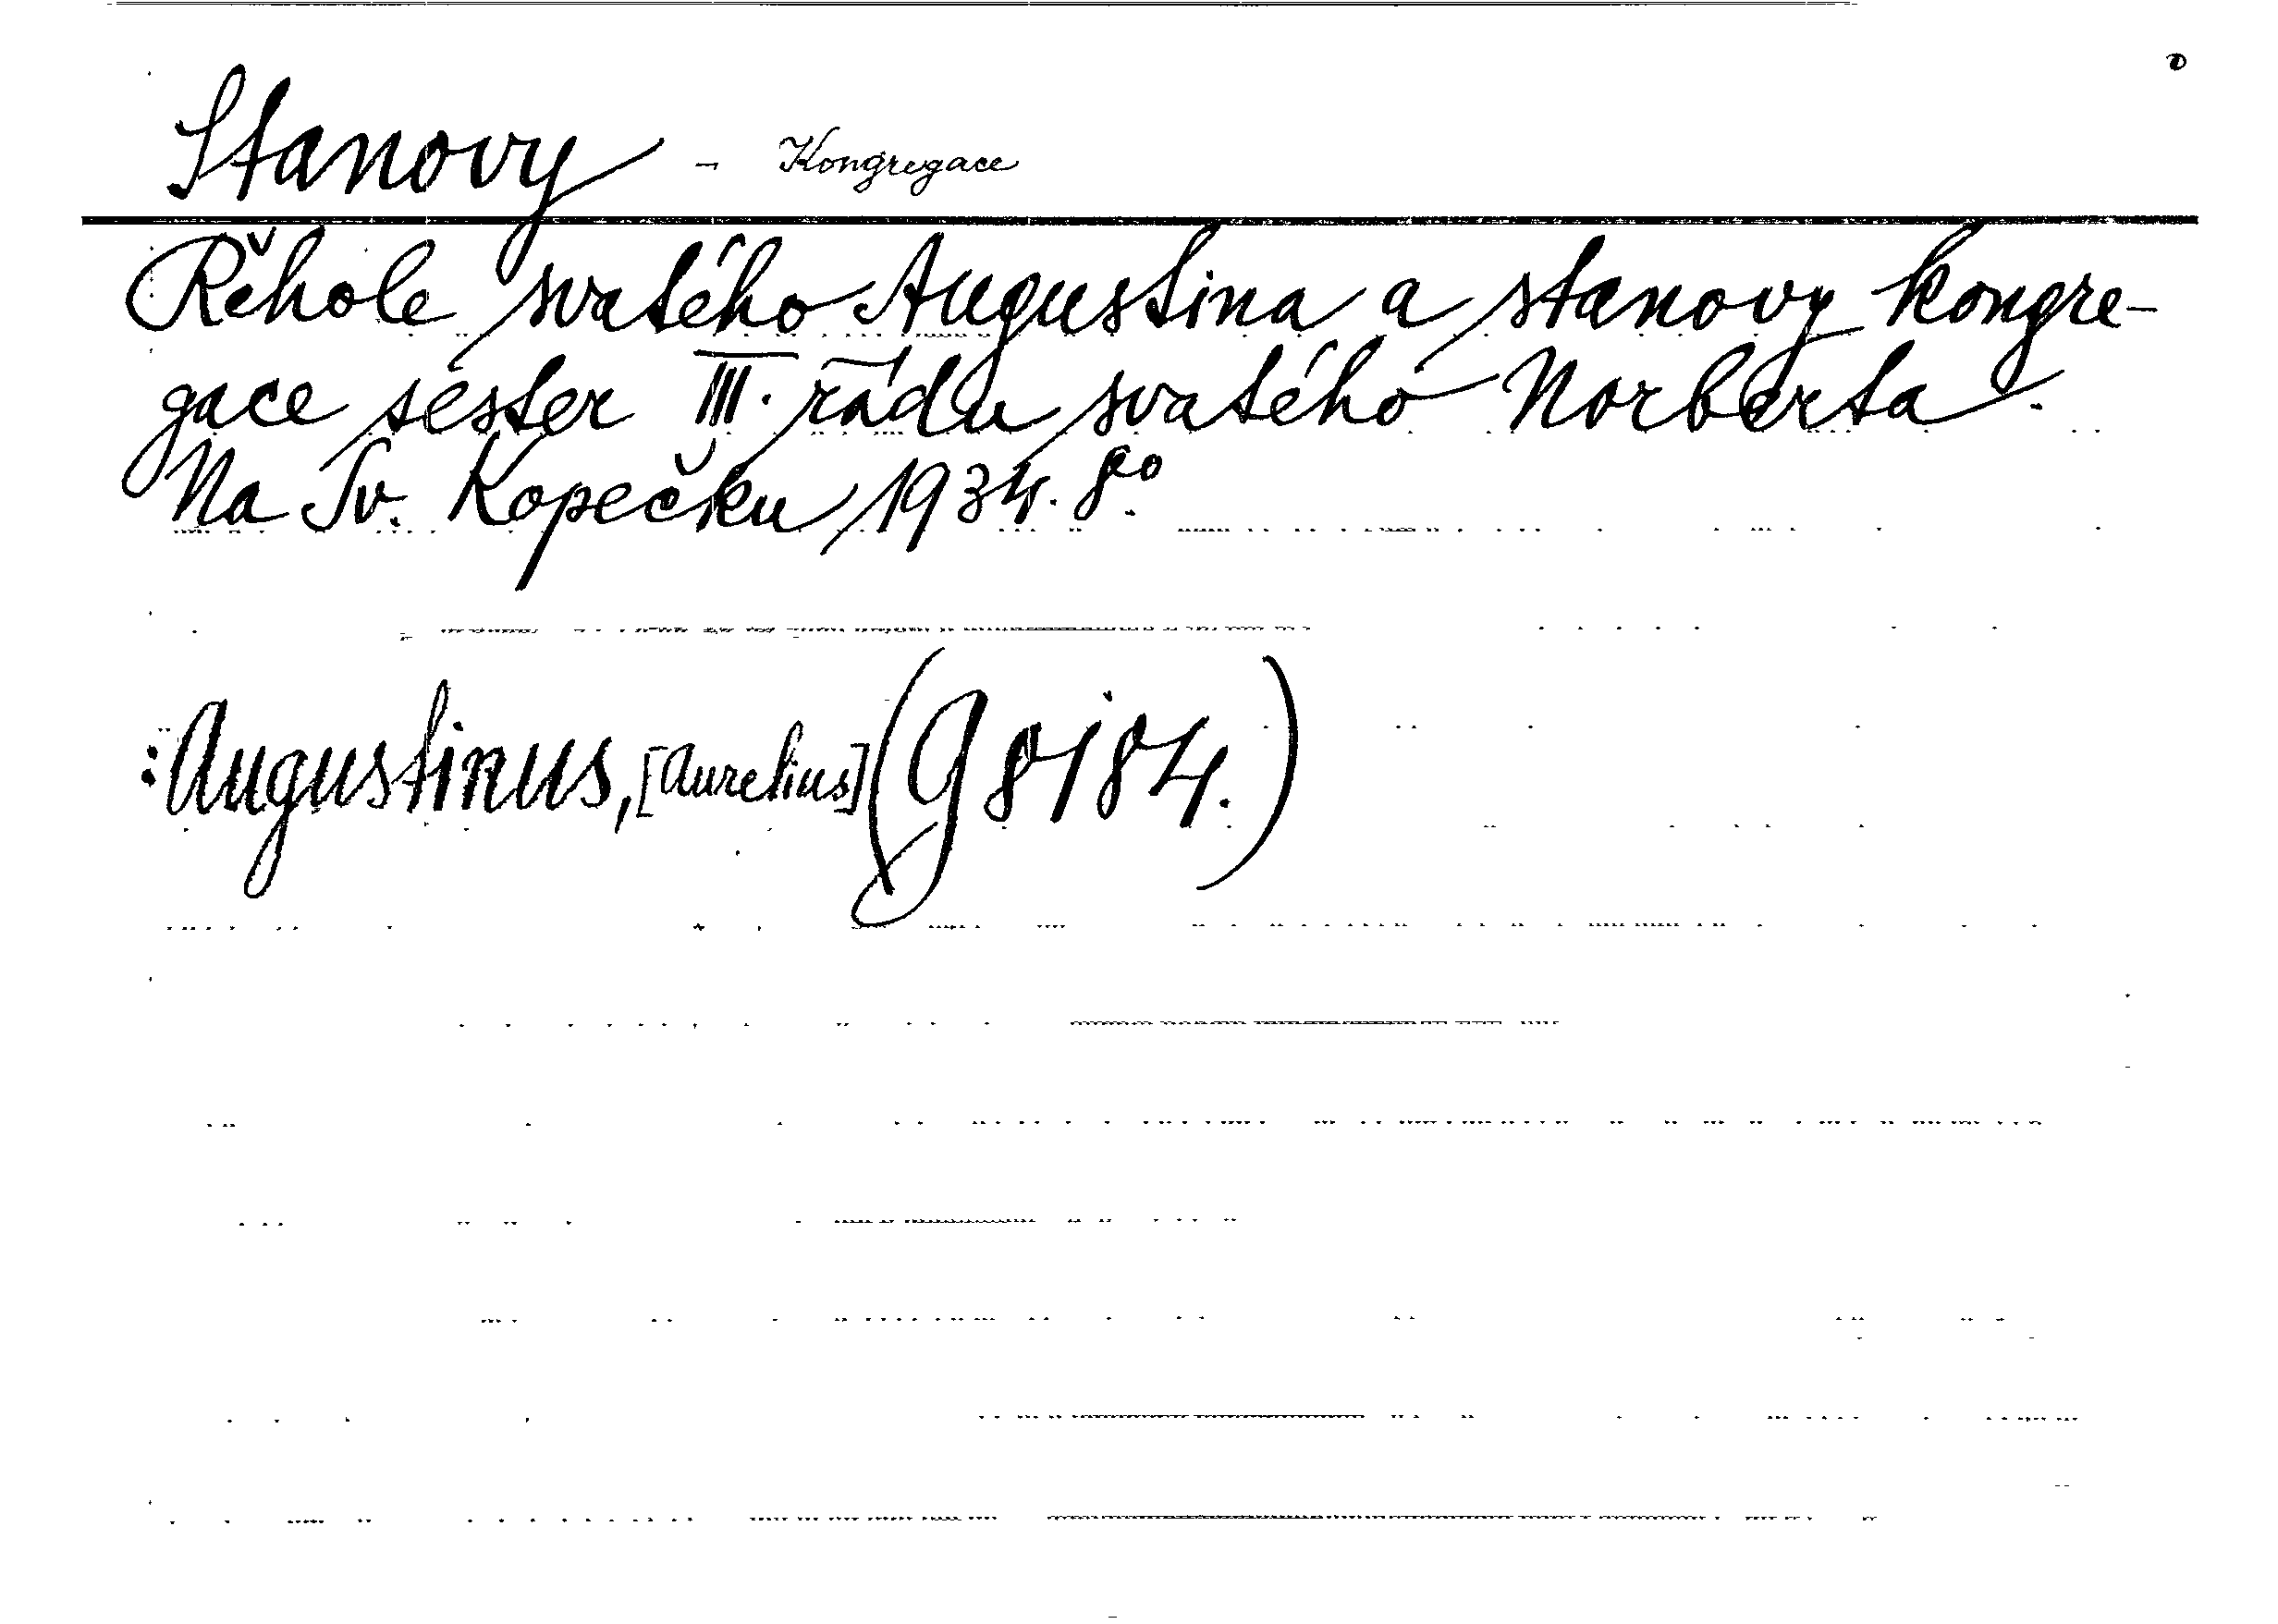 Stanovy - Kongregace
Řehole svatého Augustina a stanovy kongre-
gace sester III. řádu svatého Norberta.
Na Sv. Kopečku 1934. 8°.
:Augustinus, [Aurelius] (g 8184.)